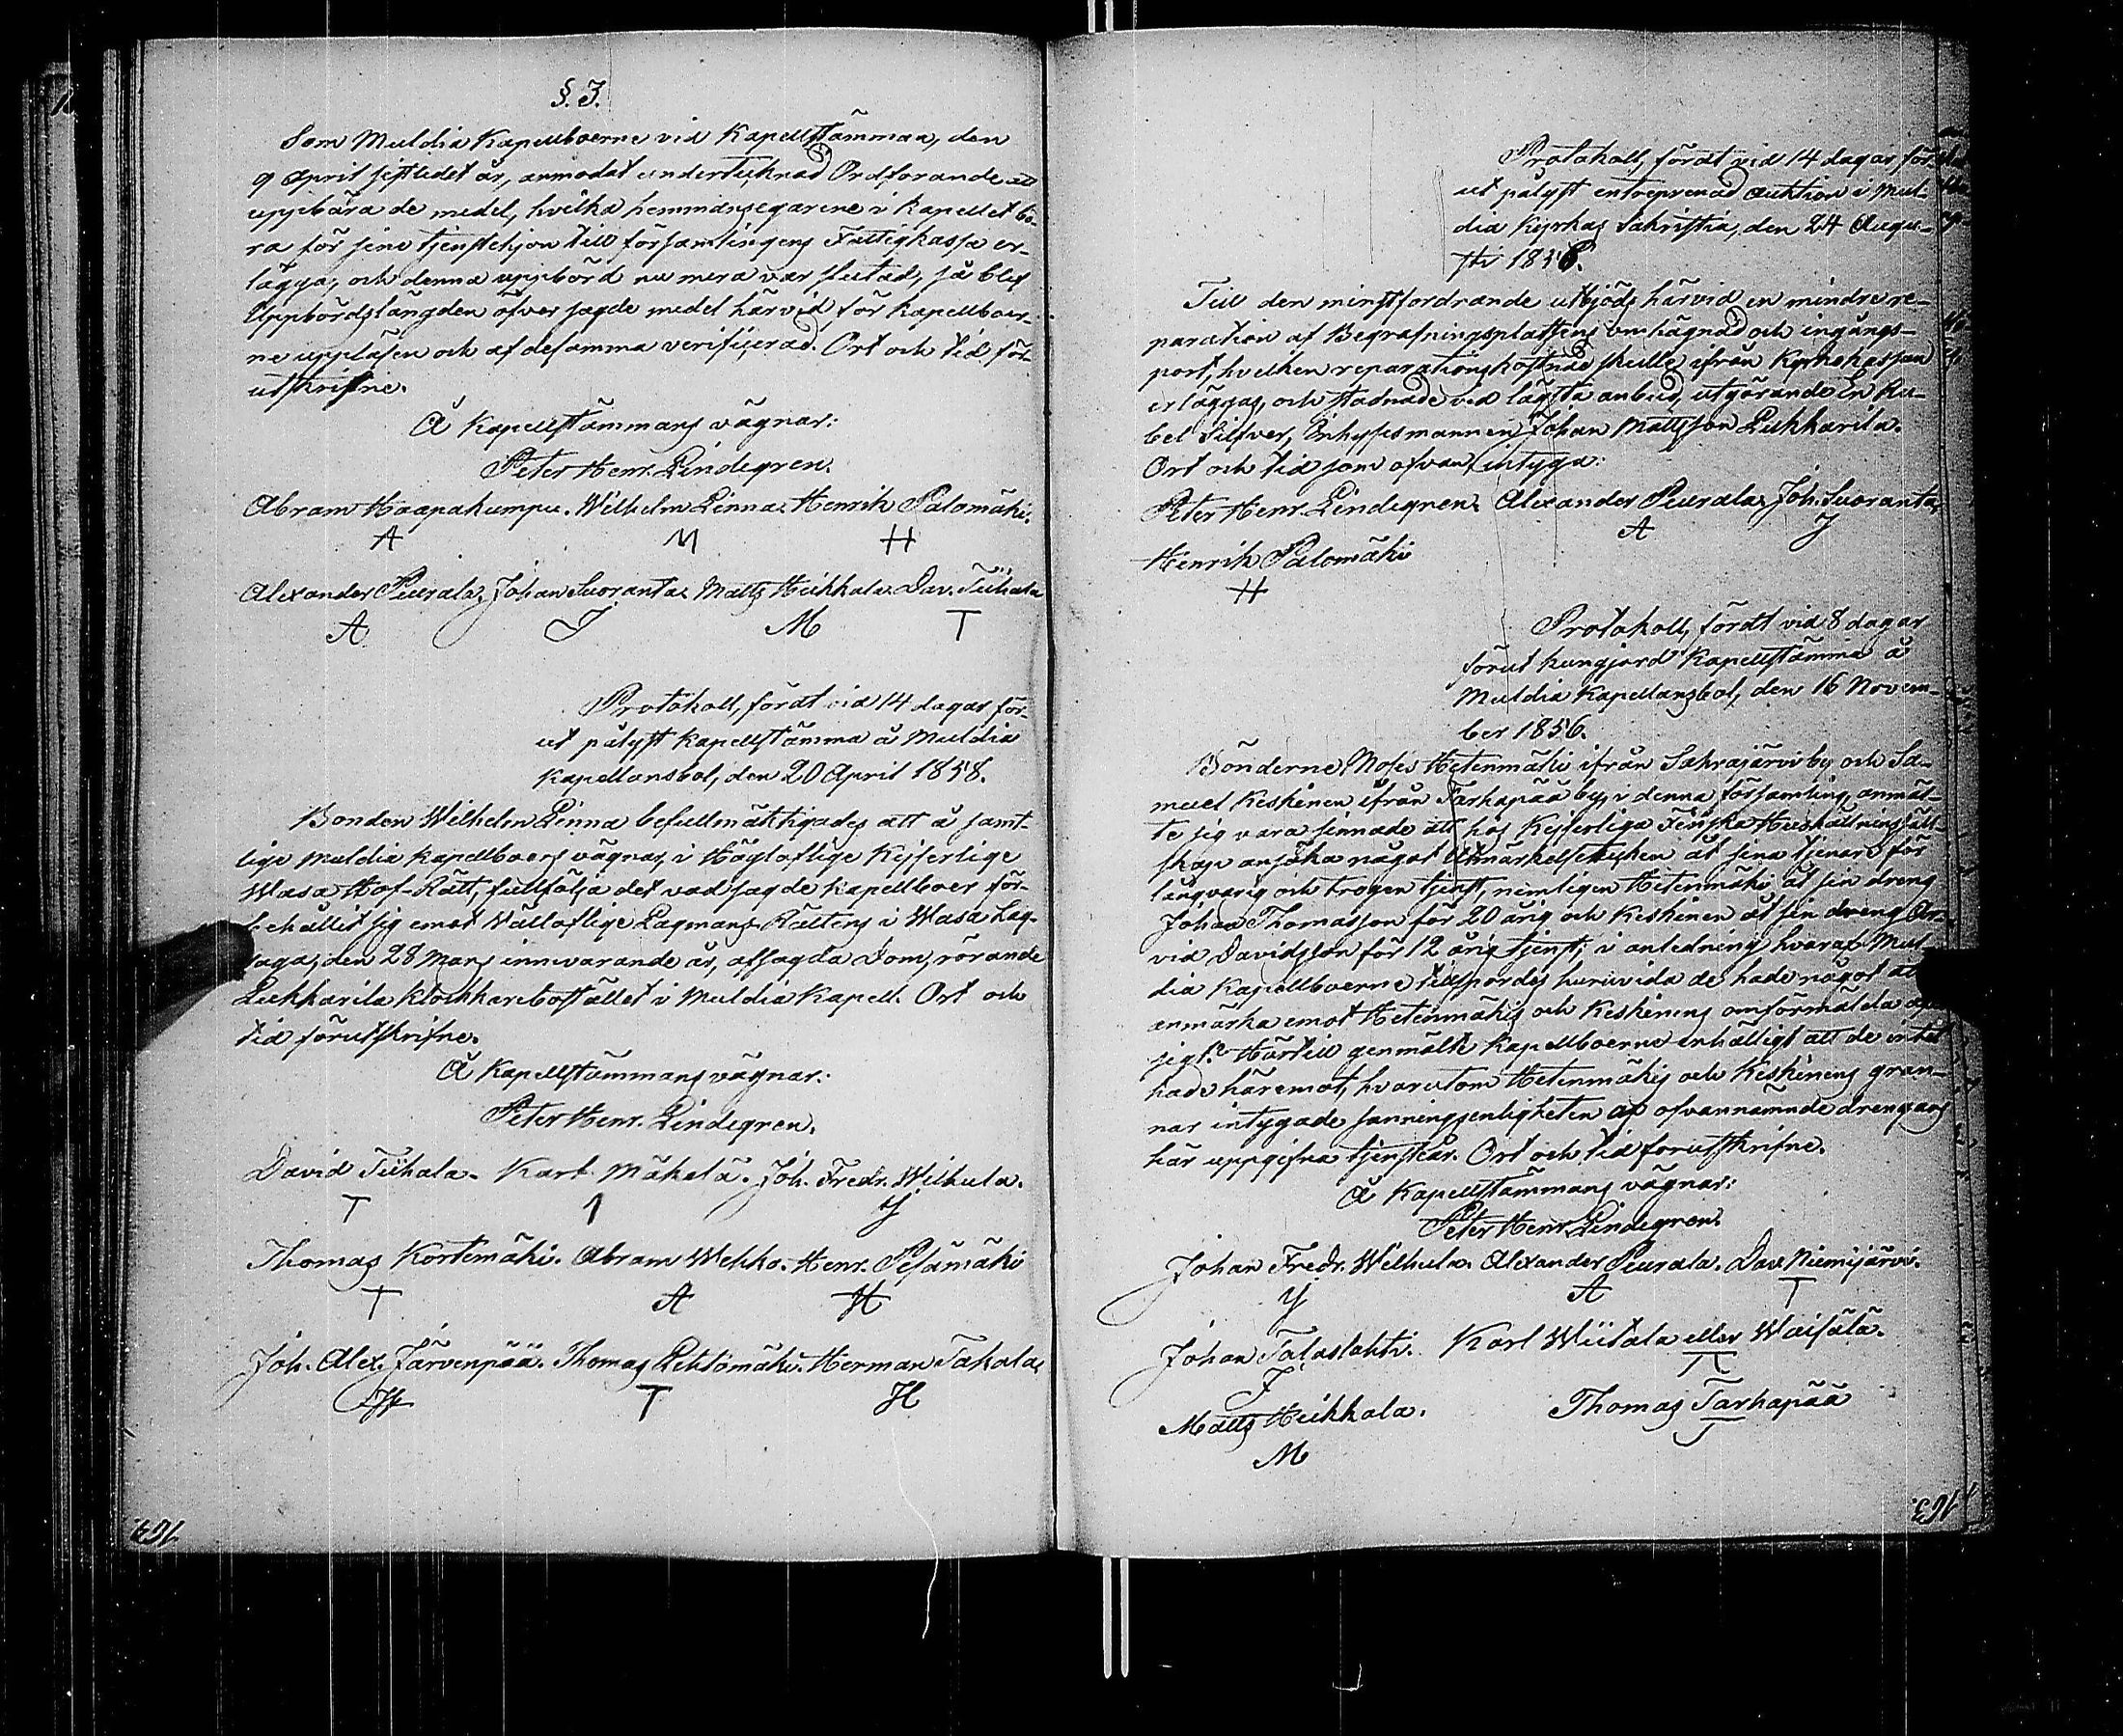 §. 3.
Som Muldia Kapellboerne vid Kapellstämman, den
9 April sistledet år, anmodat undertecknad Ordförande att
uppbära de medel, hvilka hemmansegarene i kapellet bö-
ra för sine tjenstehjon till församlingens Fattigkassa er-
lägga, och denna uppbörd nu mera var slutad, så blef
Uppbördslängden öfver sagde medel härvid för kapellboer-
ne uppläsen och af desamma verifierad. Ort och tid för-
utskrifne.
Å Kapellstämmans vägnar:
Peter Henr. Lindegren.
Abram Haapakumpu. Wilhelm Linna. Henrik Palomäki.
A M H
Alexander Peurala. Johan Suoranta. Matts Heikkala. Dav. Tiihala
A J M T
Protokoll, fördt vid 14 dagar för-
ut pålyst Kapellstämma å Muldia
Kapellansbol, den 20 April 1858.
Bonden Wilhelm Linna befullmäktigades att å samt-
lige Muldia Kapellboers vägnar, i Högloflige Kejserlige
Wasa Hof-Rätt, fullfölja det vad sagde kapellboer för-
behållit sig emot Välloflige Lagmans-Rättens i Wasa Lag-
saga, den 28 Mars innevarande år, afsagda Dom, rörande
Lukkarila klockarebostället i Muldia Kapell. Ort och
tid förutskrifne.
Å Kapellstämmans vägnar:
Peter Henr. Lindegren.
David Tiihala. Karl Mäkelä. Joh. Fredr. Wilhula.
T 1 Y
Thomas Kortemäki. Abram Wehko. Henr. Pesämäki
T A H
Joh. Alex. Järvenpää. Thomas Lehtomäki. Herman Takala.
T H
163.
Protokoll, fördt vid 14 dagar för-
ut pålyst entreprenad auktion i Mul-
dia Kyrkas Sakristia, den 24 Augu-
sti 1856.
Till den minstfordrande utbjöds härvid en mindre re-
paration af Begrafningsplatsens omhägnad och ingångs-
port, hvilken reparationskostnad skulle ifrån Kyrkokassan
erläggas, och stadnade vid lägsta anbud, utgörande En Ru-
bel Silfver, Inhysesmannen Johan Mattsson Lukkarila.
Ort och tid som ofvan, intyga:
Peter Henr. Lindegren. Alexander Peurala. Joh. Suoranta.
A J
Henrik Palomäki
H
Protokoll, fördt vid 8 dagar
förut kungjord Kapellstämma å
Muldia Kapellansbol, den 16 Novem-
ber 1856.
Bönderne Moses Hetenmäki ifrån Sahrajärvi by och Sa-
muel Keskinen ifrån Tarhapää by, i denna församling, anmäl-
te sig vara sinnade att hos Kejserliga Finska Hushållnings säll-
skap ansöka något utmärkelsetecken åt sina tjenare för
långvarig och trogen tjenst, nemligen Hetenmäki åt sin dreng
Johan Thomasson för 20 årig och Keskinen åt sin dreng Ar-
vid Davidsson för 12 årig tjenst; i anledning hvaraf Mul-
dia Kapellboerne tillspordes huruvida de hade något att
anmärka emot Hetenmäkis och Keskinens omförmälda af-
sigt? Härtill genmälte Kapellboerne enhälligt att de intet
hade häremot, hvarutom Hetenmäkis och Keskinens gran-
nar intygade sanningsenligheten af ofvannämnde drengars
här uppgifna tjenstår. Ort och tid förutskrifne.
Å Kapellstämmans vägnar:
Peter Henr. Lindegren.
Johan Fredr. Wilhula. Alexander Peurala. Dav. Niemijärvi.
Y A T
Johan Talaslahti. Karl Wiitala eller Waisälä.
J
Matts Heikkala. Thomas Tarhapää
M
163.